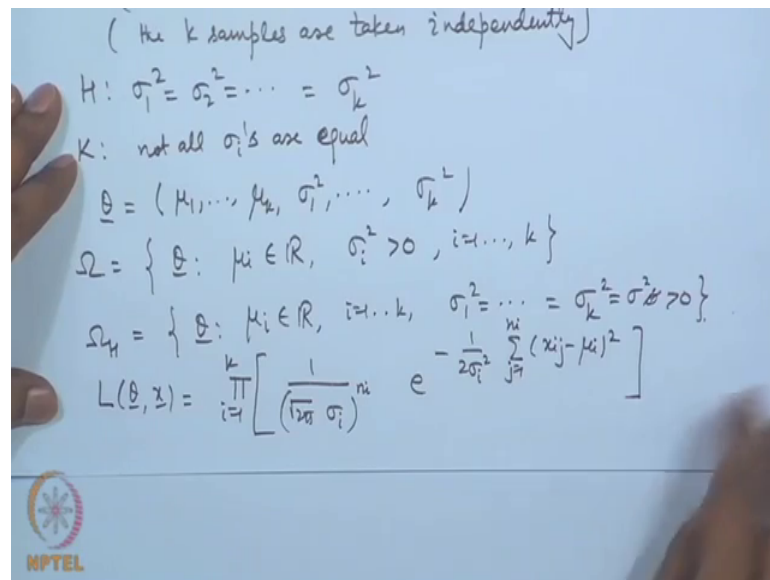 ( the k samples are taken independently)
H: σ₁² = σ₂² = ⋯ = σₖ²
K: not all σᵢ's are equal
θ = ( μ₁,⋯, μₖ, σ₁²,⋯⋯, σₖ² )
Ω = { θ: μᵢ ∈ ℝ, σᵢ² >0 , i=1⋯, k }
Ω_H = { θ: μᵢ ∈ ℝ, i=1..k, σ₁² = ⋯ = σₖ² = σ² >0 }
L(θ, x) = ∏_{i=1}^{k} [ 1/(√2π σᵢ)^{nᵢ} e^{- 1/(2σᵢ²) ∑_{j=1}^{nᵢ} (xᵢⱼ - μᵢ)²} ]
NPTEL